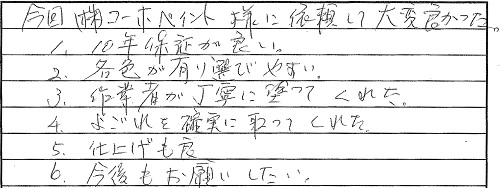 今回(株)コーホペイント様に依頼して大変良かった。
1. 10年保証が良い。
2. 各色が有り選びやすい。
3. 作業者が丁寧に塗ってくれた。
4. よごれを確実に取ってくれた。
5. 仕上げも良
6. 今後もお願いしたい。